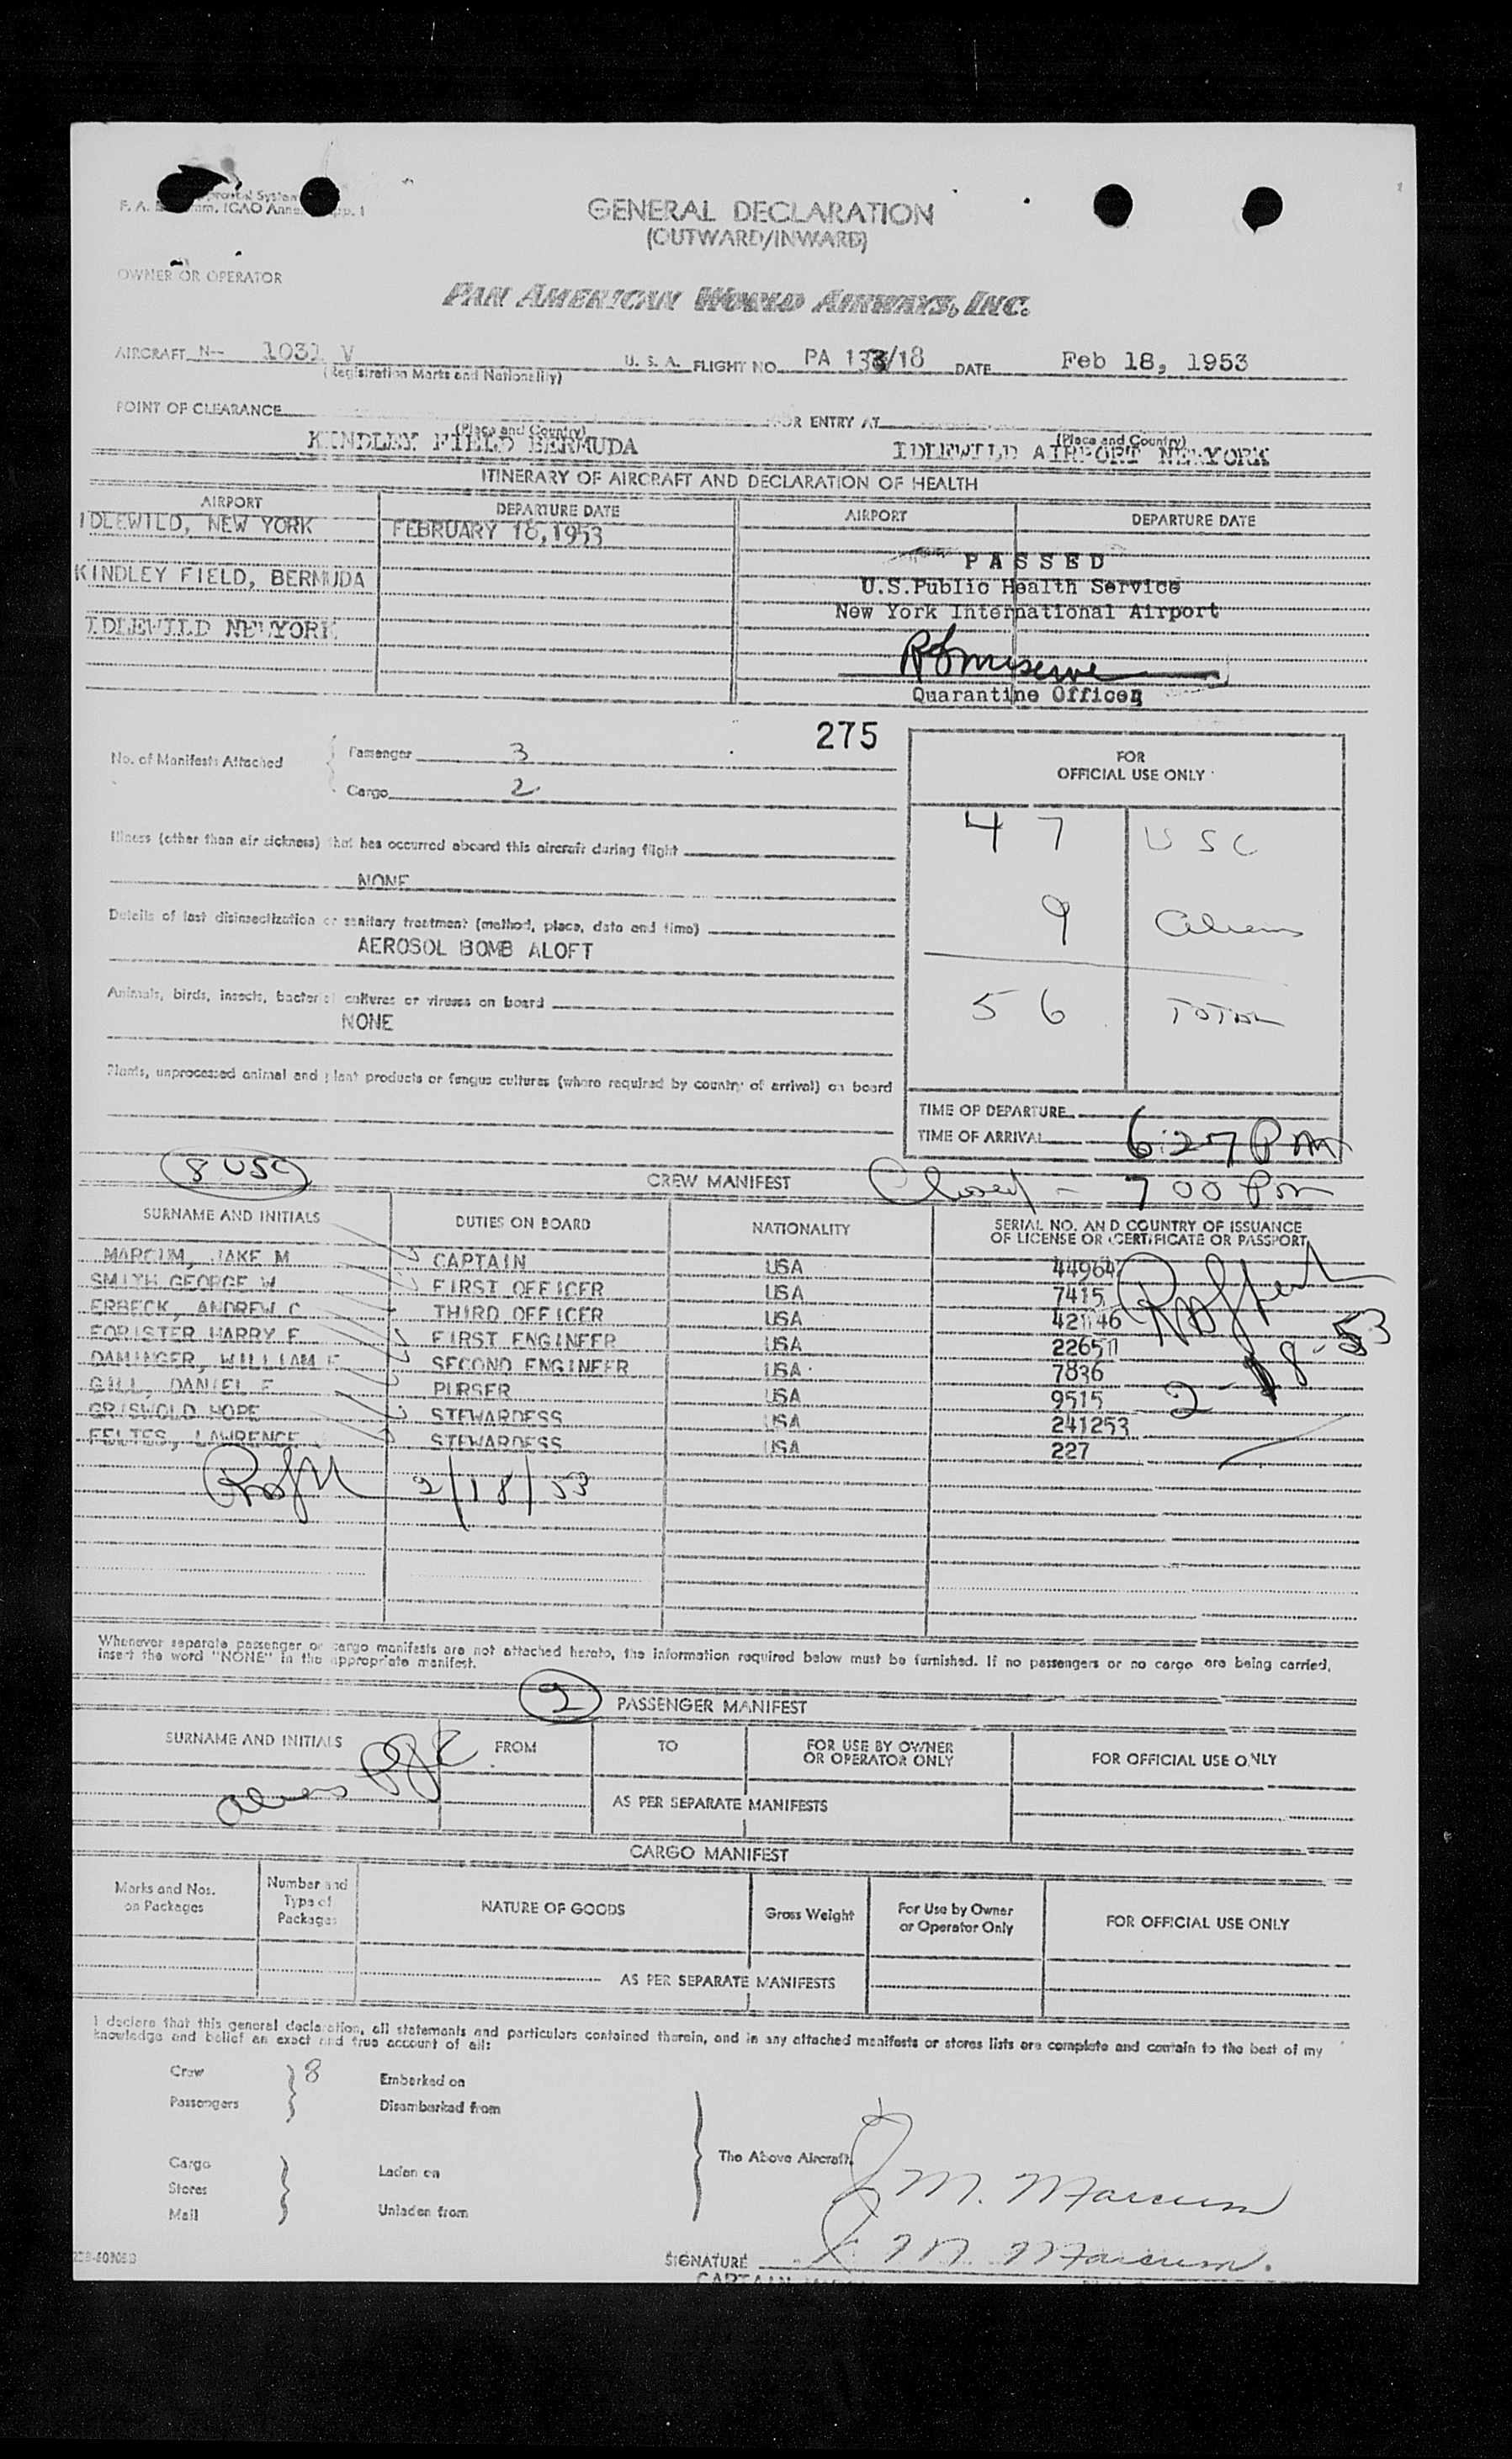 GENERAL DECLARATION
(OUTWARD/INWARD)
OWNER OR OPERATOR
PAN AMERICAN WORLD AIRWAYS, INC.
AIRCRAFT N-- 1031 V U. S. A. FLIGHT NO. PA 133/18 DATE Feb 18, 1953
(Registration Marks and Nationality)
POINT OF CLEARANCE FOR ENTRY AT
(Place and Country) (Place and Country)
KINDLEY FIELD BERMUDA IDLEWILD AIRPORT NEWYORK
ITINERARY OF AIRCRAFT AND DECLARATION OF HEALTH
AIRPORT DEPARTURE DATE AIRPORT DEPARTURE DATE
IDLEWILD, NEW YORK FEBRUARY 18,1953
PASSED
KINDLEY FIELD, BERMUDA U.S.Public Health Service
New York International Airport
IDLEWILD NEWYORK
Quarantine Officer
275
No. of Manifests Attached
Passenger 3
Cargo 2
FOR
OFFICIAL USE ONLY
47 USC
9 Aliens
56 TOTAL
Illness (other than air sickness) that has occurred aboard this aircraft during flight
NONE
Details of last disinsectization or sanitary treatment (method, place, date and time)
AEROSOL BOMB ALOFT
Animals, birds, insects, bacterial cultures or viruses on board
NONE
Plants, unprocessed animal and plant products or fungus cultures (where required by country of arrival) on board
TIME OF DEPARTURE
TIME OF ARRIVAL 6:27 PM
8 USC CREW MANIFEST Closed - 7 00 Pm
SURNAME AND INITIALS DUTIES ON BOARD NATIONALITY SERIAL NO. AND COUNTRY OF ISSUANCE
OF LICENSE OR CERTIFICATE OR PASSPORT
MARCUM, JAKE M CAPTAIN USA 44964
SMITH GEORGE W FIRST OFFICER USA 7415
ERBECK, ANDREW C THIRD OFFICER USA 421146
FORISTER HARRY F FIRST ENGINEER USA 22651
DAMINGER, WILLIAM F SECOND ENGINEER USA 7836
GILL, DANIEL F PURSER USA 9515
GRISWOLD HOPE STEWARDESS USA 241253
FELTES, LAWRENCE STEWARDESS USA 227
2-18-53
2/18/53
Whenever separate passenger or cargo manifests are not attached hereto, the information required below must be furnished. If no passengers or no cargo are being carried,
insert the word "NONE" in the appropriate manifest.
2 PASSENGER MANIFEST
SURNAME AND INITIALS FROM TO FOR USE BY OWNER
OR OPERATOR ONLY FOR OFFICIAL USE ONLY
AS PER SEPARATE MANIFESTS
CARGO MANIFEST
Marks and Nos.
on Packages Number and
Type of
Packages NATURE OF GOODS Gross Weight For Use by Owner
or Operator Only FOR OFFICIAL USE ONLY
AS PER SEPARATE MANIFESTS
I declare that this general declaration, all statements and particulars contained therein, and in any attached manifests or stores lists are complete and contain to the best of my
knowledge and belief an exact and true account of all:
Crew 8 Embarked on
Passengers Disembarked from
The Above Aircraft.
Cargo Laden on
Stores
Mail Unladen from
J M. Marcum
SIGNATURE J. M. Marcum.
CAPTAIN